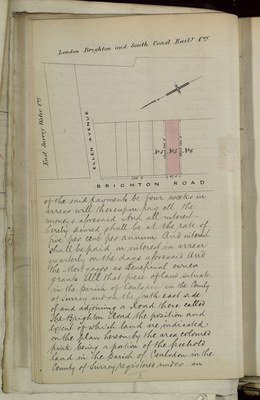 London Brighton and South Coast Rail.y Co.y
East Surrey Water Co.y
ELLEN AVENUE
No 7 No 8 No 6
BRIGHTON ROAD
of the said payments be four weeks in
arrear will thereupon pay all the
moneys aforesaid And all interest
hereby secured shall be at the rate of
five per cent per annum And interest
shall be paid on interest in arrear
quarterly on the days aforesaid And
the Mortgagor as Beneficial owner
grants All that piece of land situate
in the Parish of Coulsdon in the County
of Surrey and on the south east side
of and adjoining a Road there called
The Brighton Road the position and
extent of which land are indicated
on the plan hereon by the area coloured
pink being a portion of the freehold
land in the Parish of Coulsdon in the
County of Surrey registered under an